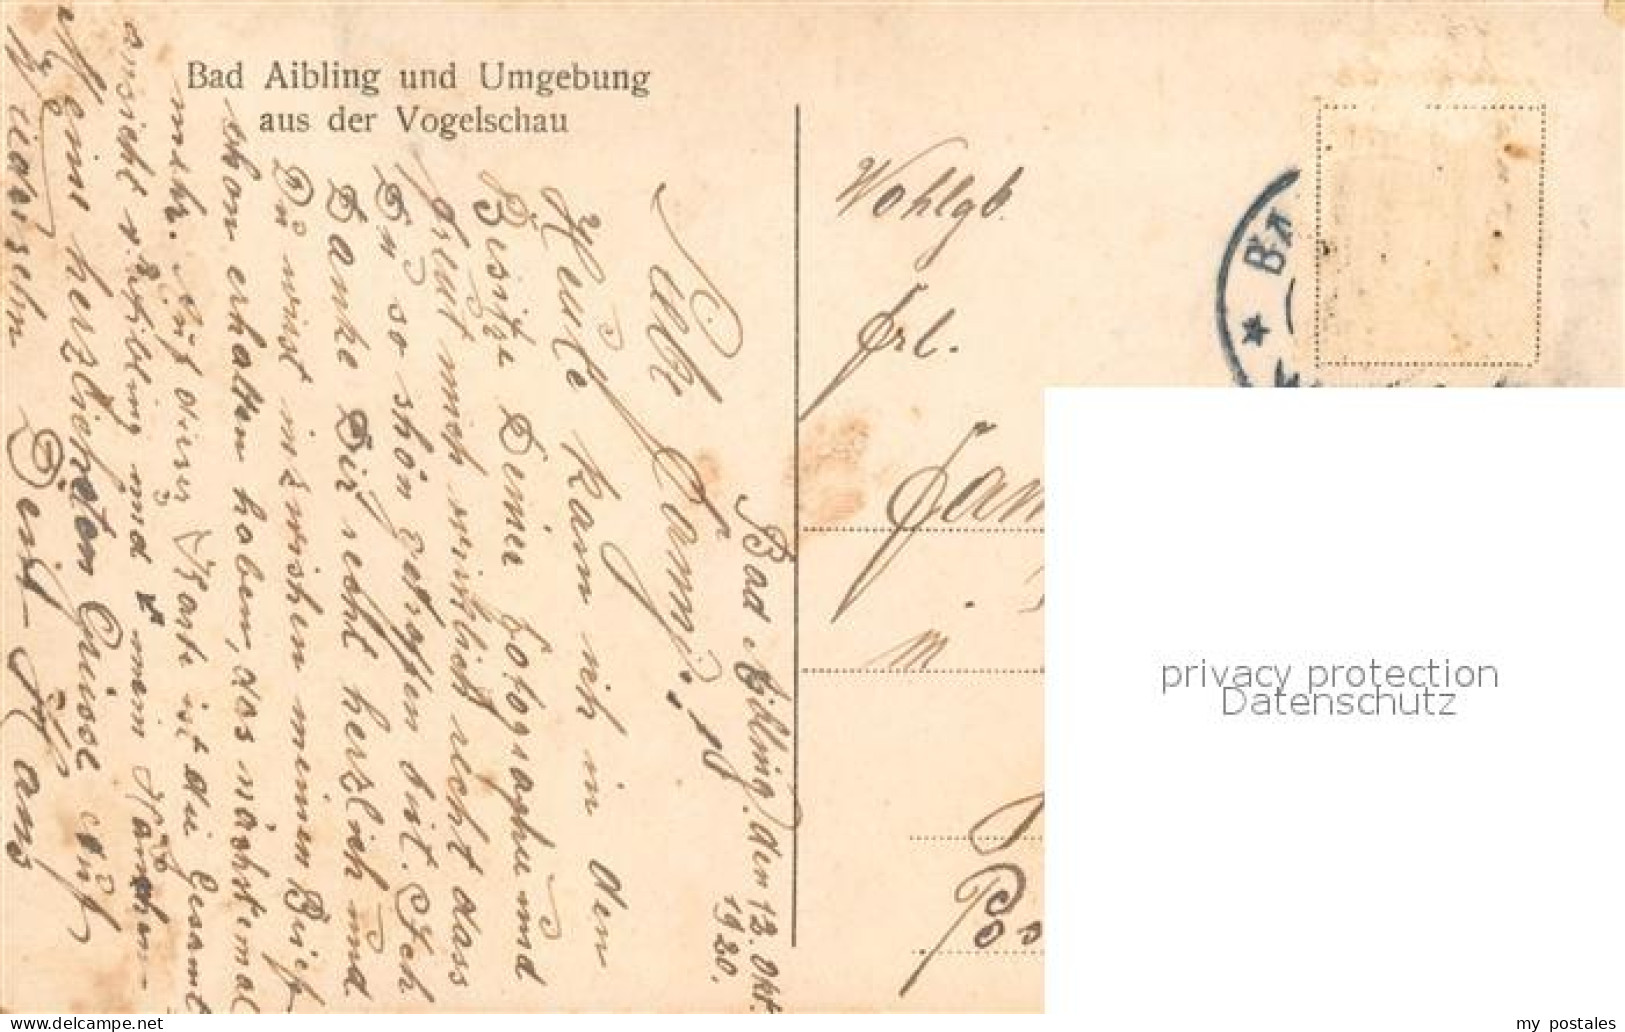 Bad Aibling und Umgebung
aus der Vogelschau
Bad Aibling, den 12. Okt.
1920.
Heute kam ich in den
Besitze Deiner Fotographie und
freut mich wirklich recht dass
Du so schön getroffen bist. Ich
Danke Dir recht herzlich und
Du wirst inzwischen meinen Brief
schon erhalten haben, das nächstemal
mehr. Auf dieser Karte ist die Gesamt
ansicht v. Aibling und mein
Meine herzlichsten Grüsse auf
Wiedersehn Dein Hans
Wohlgb.
Frl.
privacy protection
Datenschutz
www.delcampe.net
my_postales